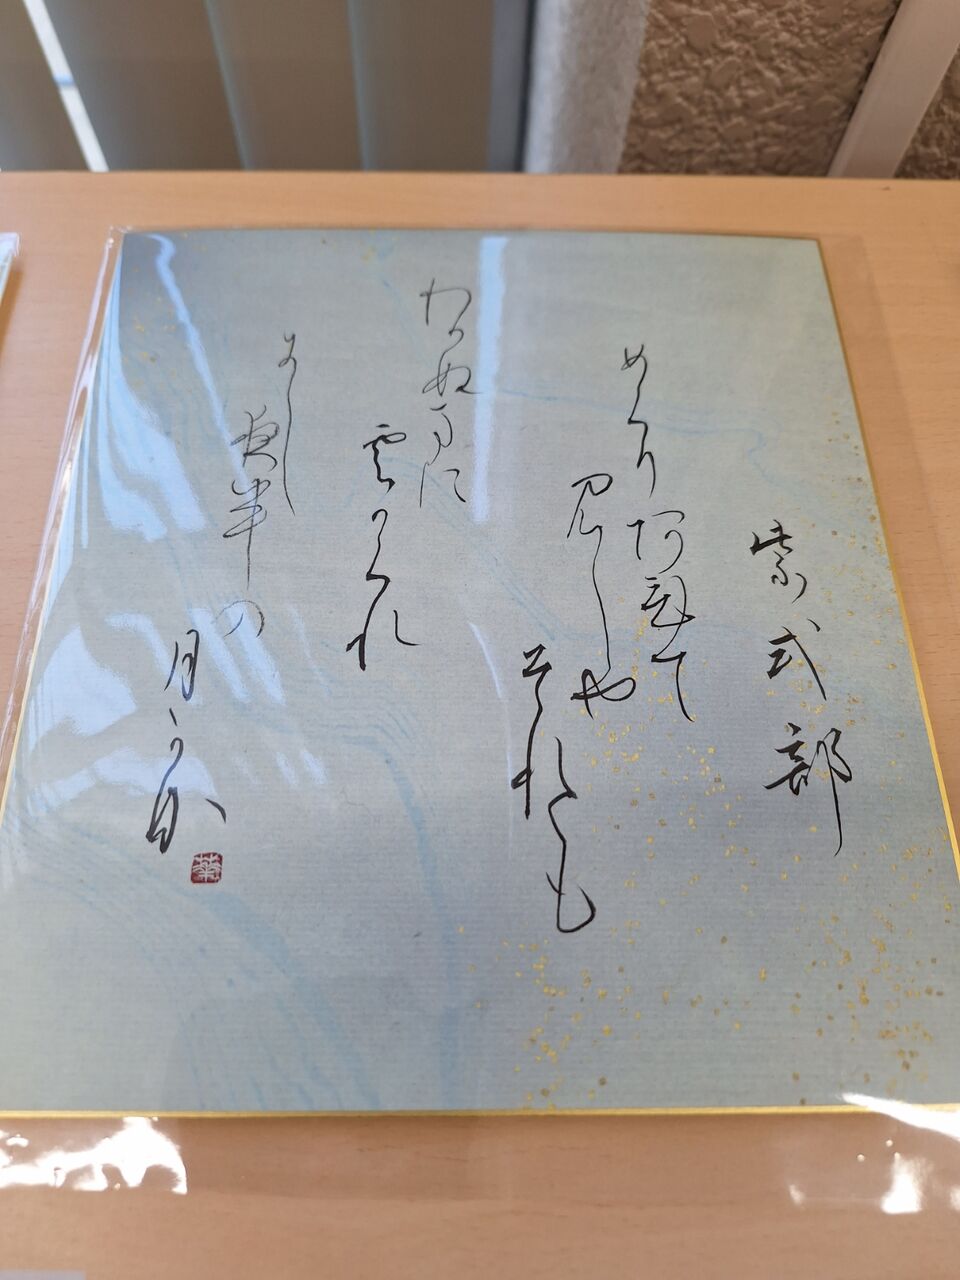 紫式部
めくりあひて
見しや
それとも
わかぬまに
雲かくれ
にし
夜半の
月かな
華